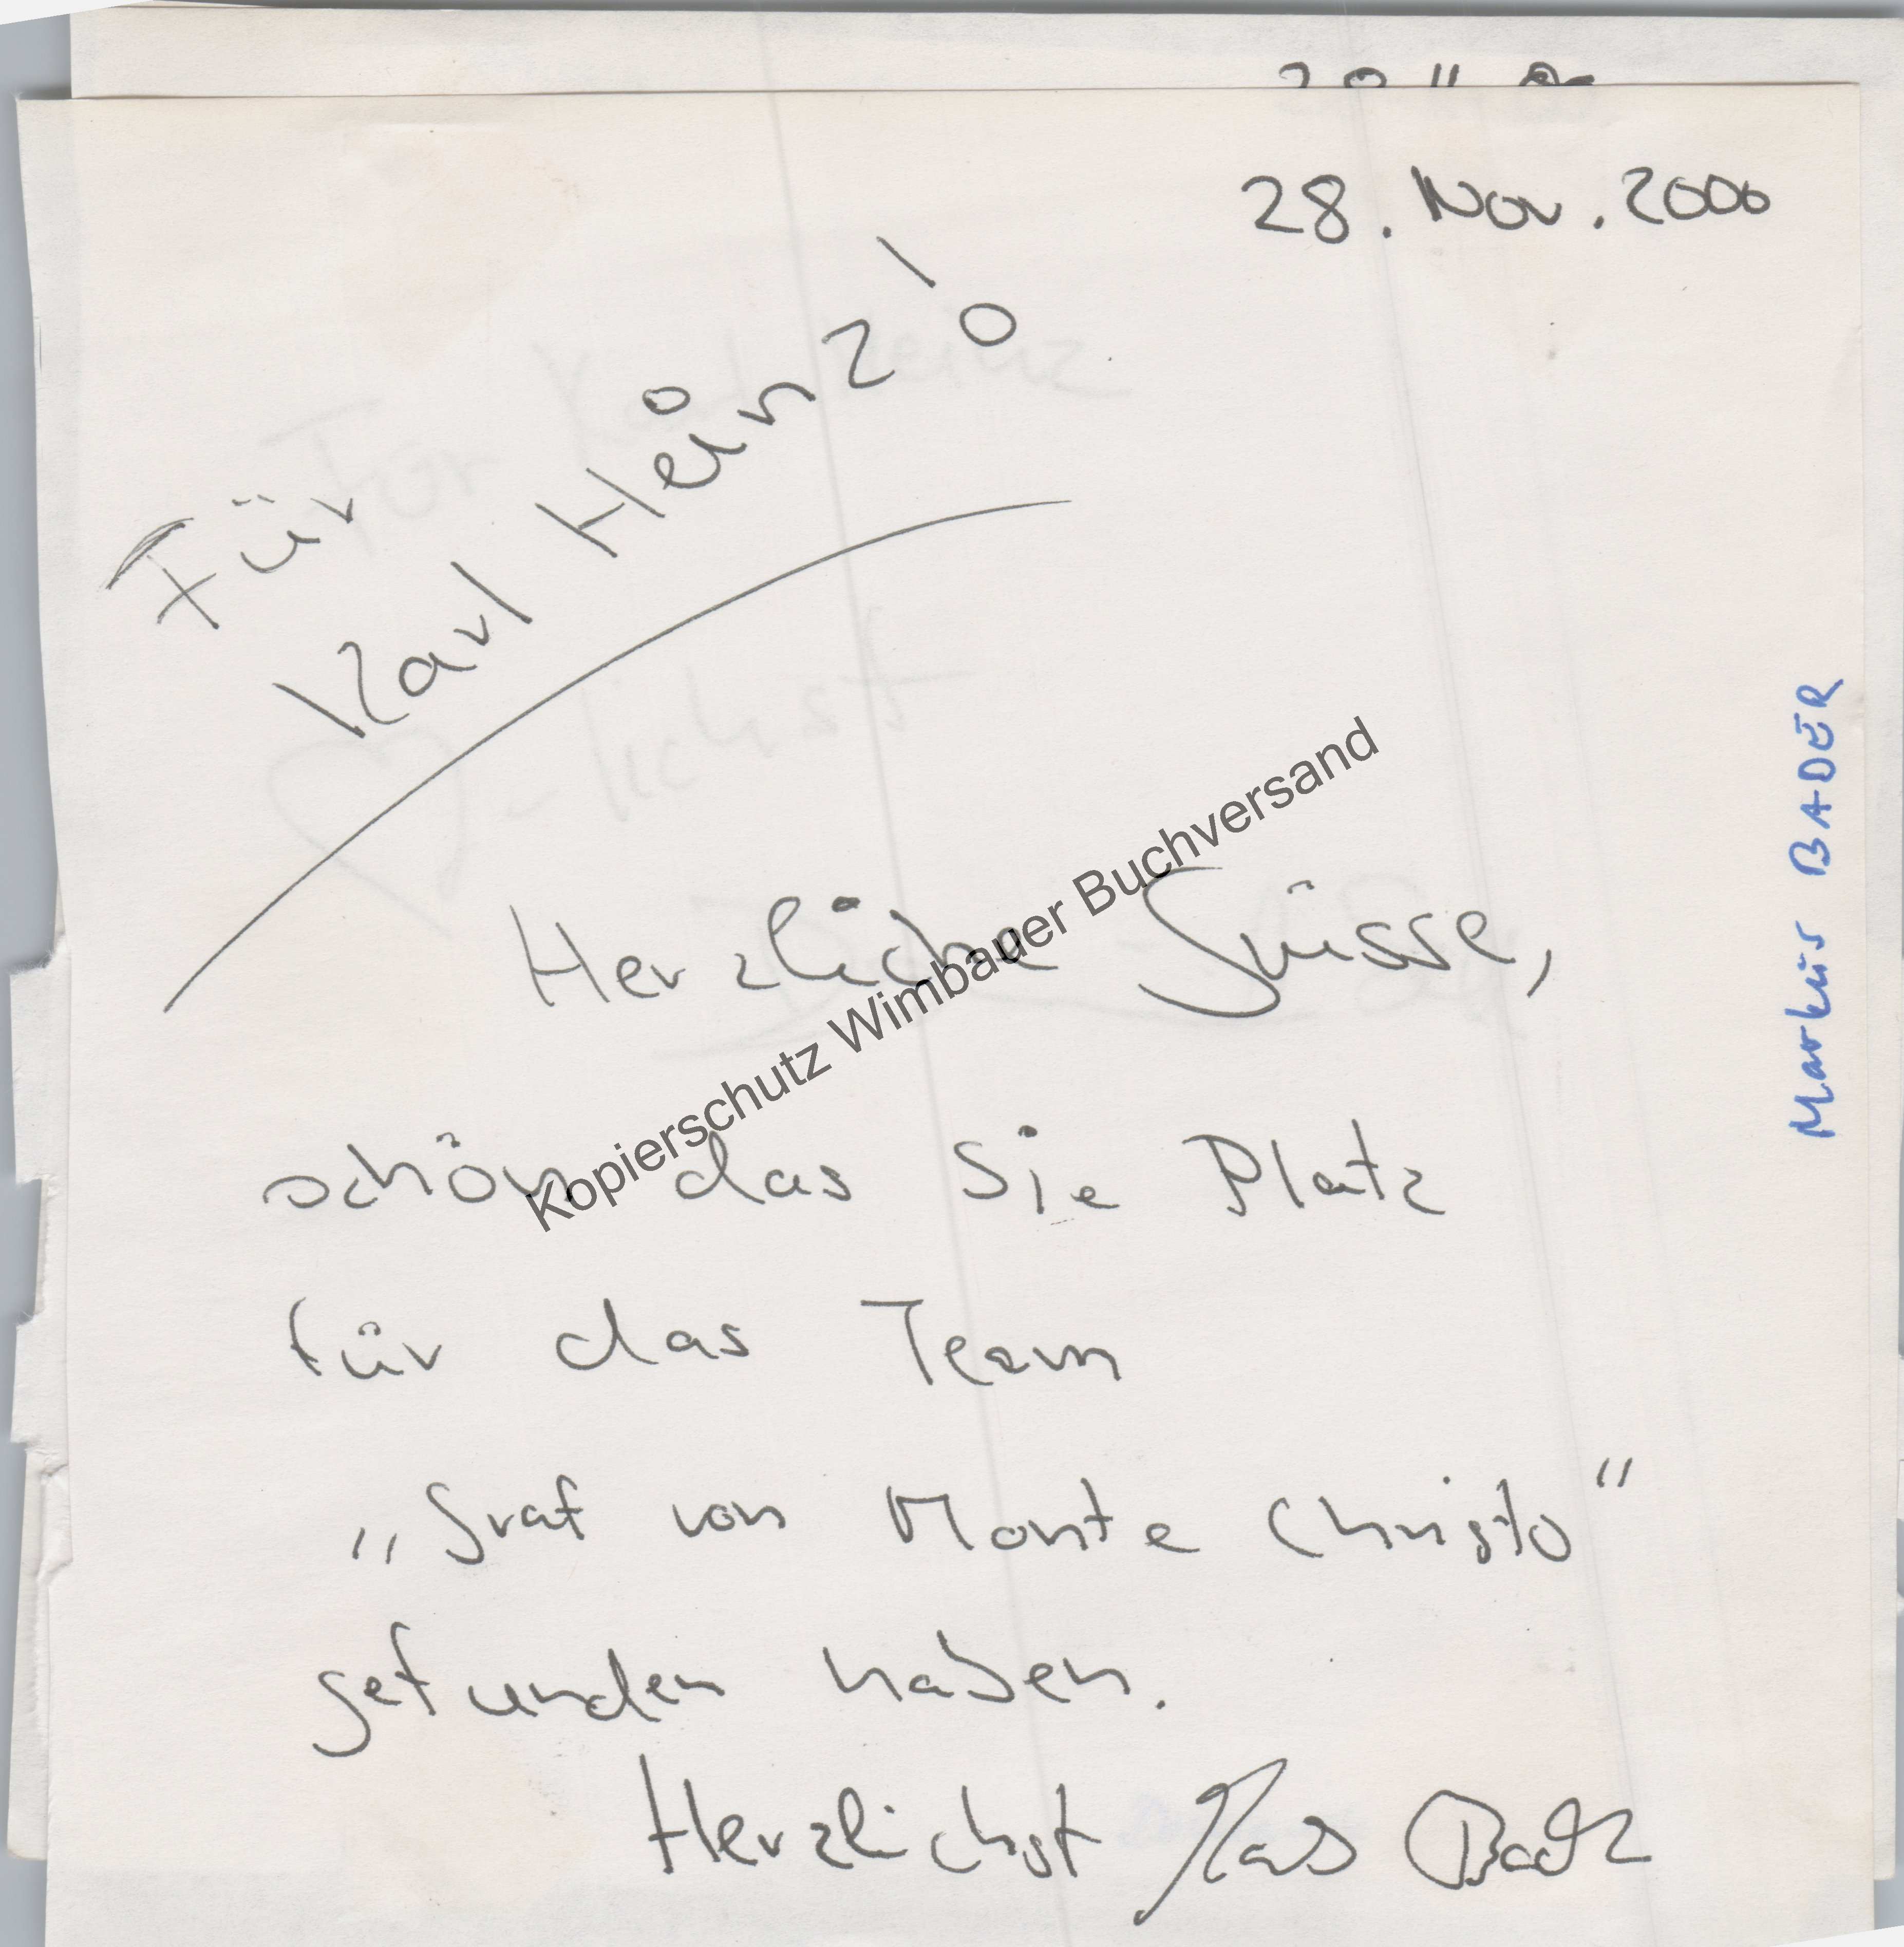 28. Nov. 2000
Für
Karl Heinz!
Herzliche Grüsse,
schön das Sie Platz
für das Team
„Graf von Monte Christo"
gefunden haben.
Herzlichst
Markus BADER
Kopierschutz Wimbauer Buchversand